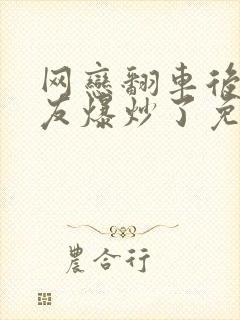 网戀翻車後
友爆炒了免
農合行